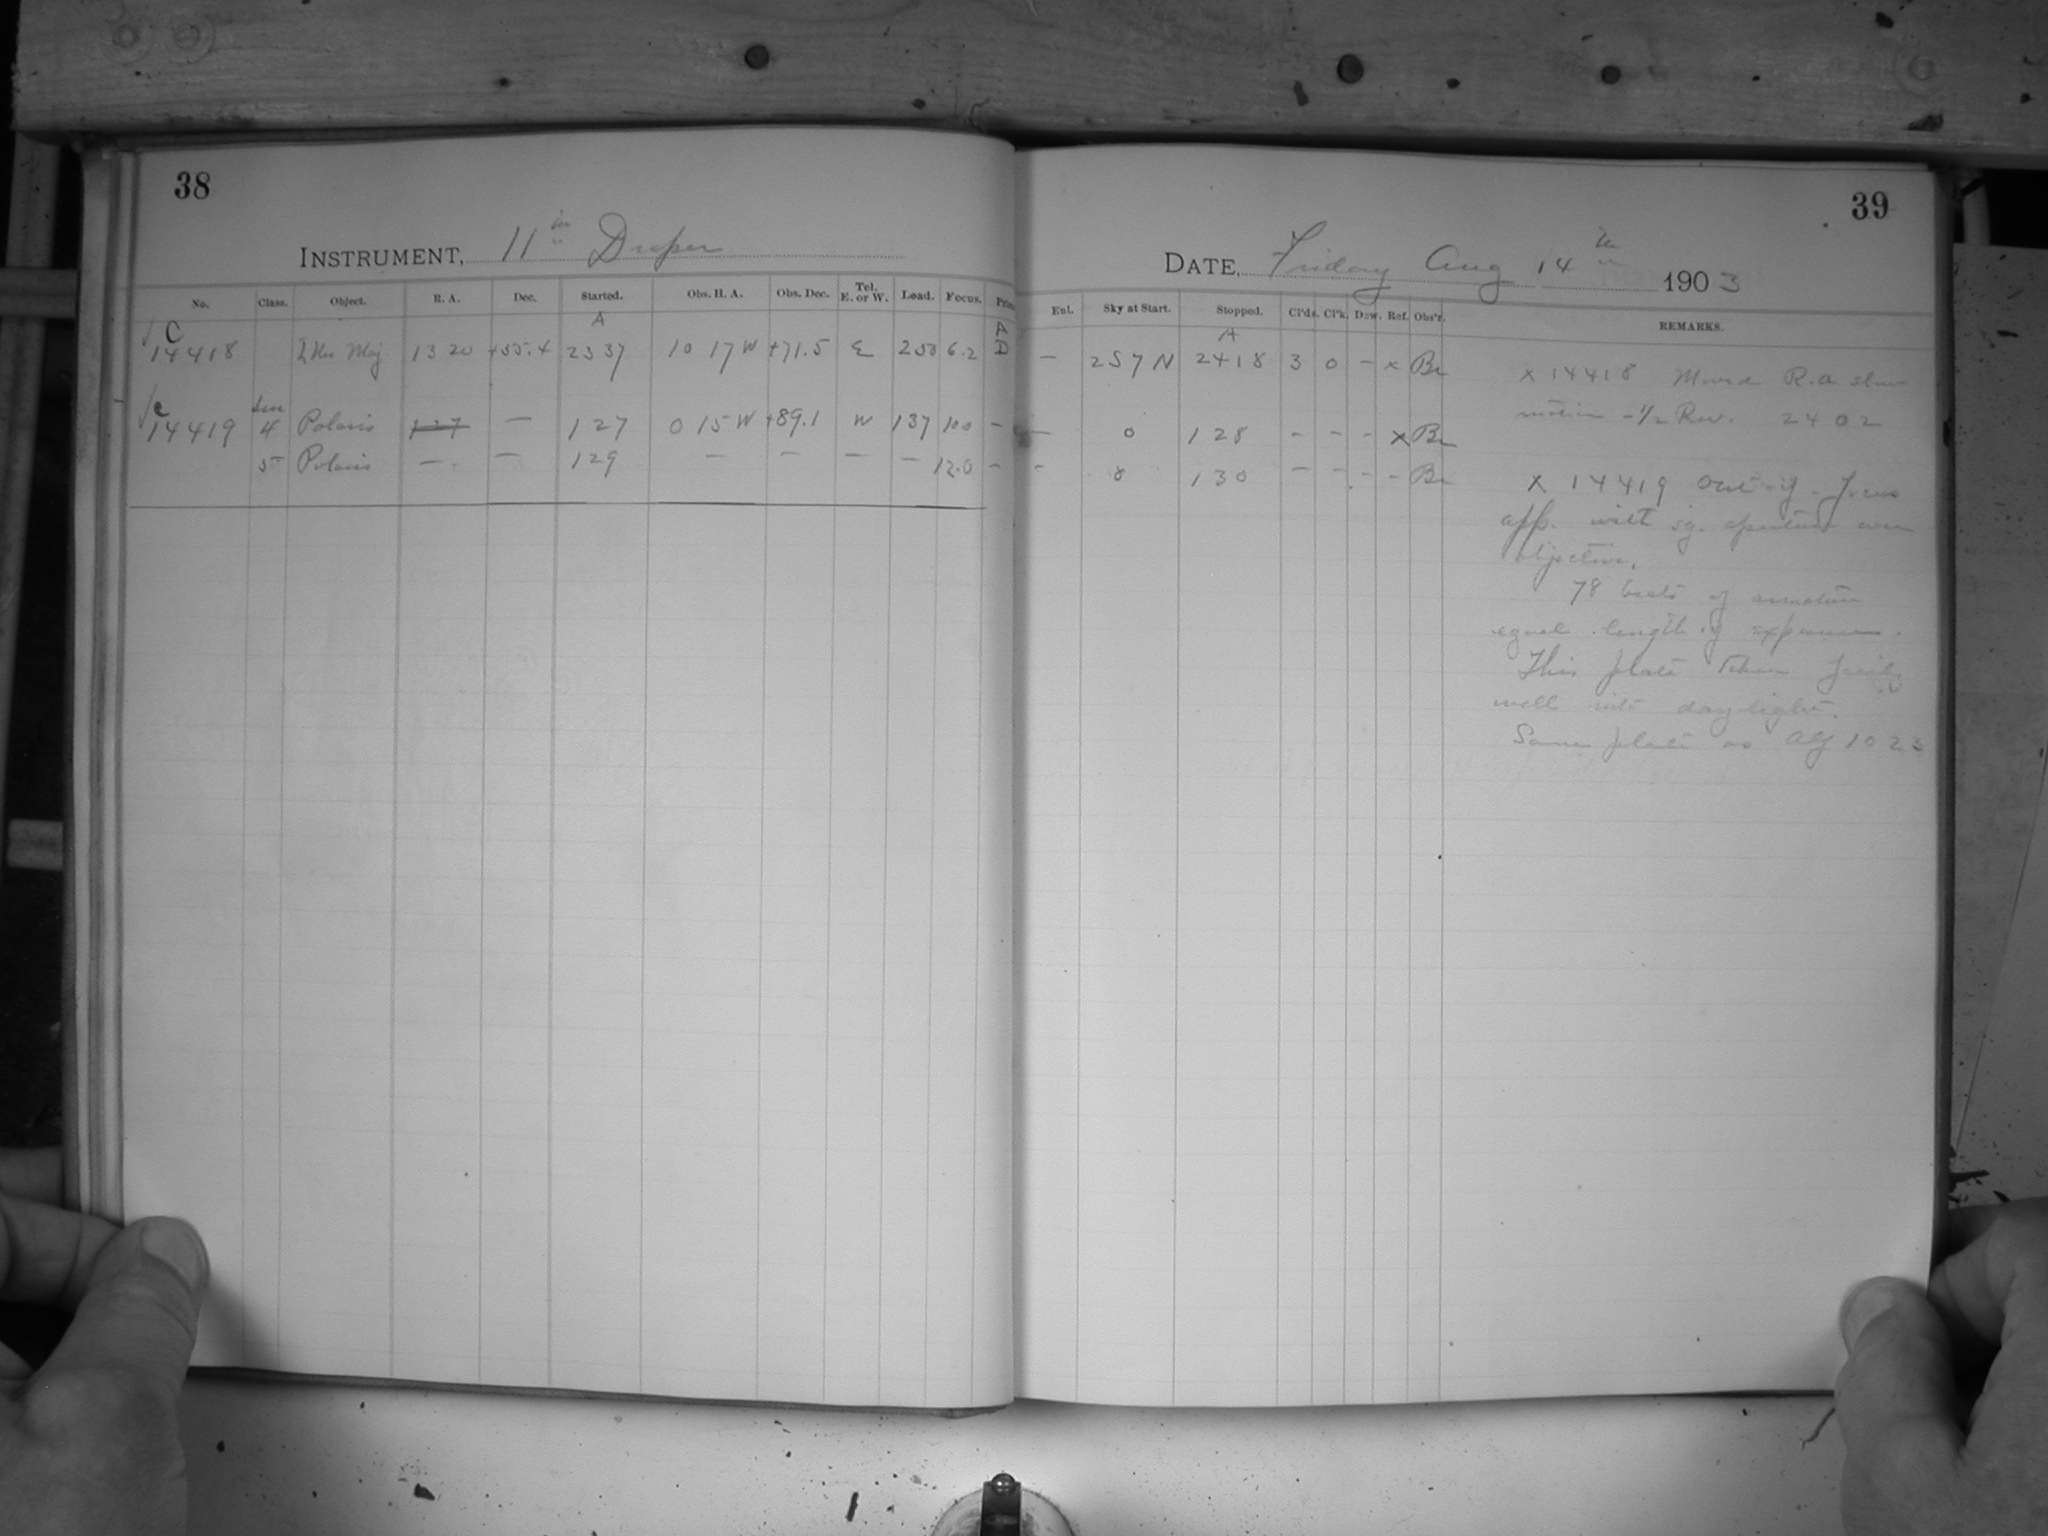 38
INSTRUMENT, 11 in Draper
No. Class. Object. R. A. Dec. Started. Obs. H. A. Obs. Dec. Tel. E. or W. Load. Focus. Prism
A A
C 14418 Maj 13 20 +55.4 23 37 10 17 W +71.5 E 250 6.2 D
c 14419 4 Polaris 1 27 — 1 27 0 15 W +89.1 W 137 10.0 –
5 Polaris — — 1 29 — — — — 12.0 –
39
DATE, Friday Aug 14 th 1903
Enl. Sky at Start. Stopped. Cl'ds. Cl'k. Dew. Ref. Obs'r. REMARKS.
A
— 2 S 7 N 24 18 3 0 – x Br
— 0 1 28 – – – x Br
– 0 1 30 – – – – Br
x 14418 Moved R.A slow
motion – 1/2 Rev. 24 02
x 14419 Out of focus
app. with sq. aperture over
objective.
78 beats of armature
equal length of exposure.
This plate taken fairly
well into daylight.
Same plate as AY 1023